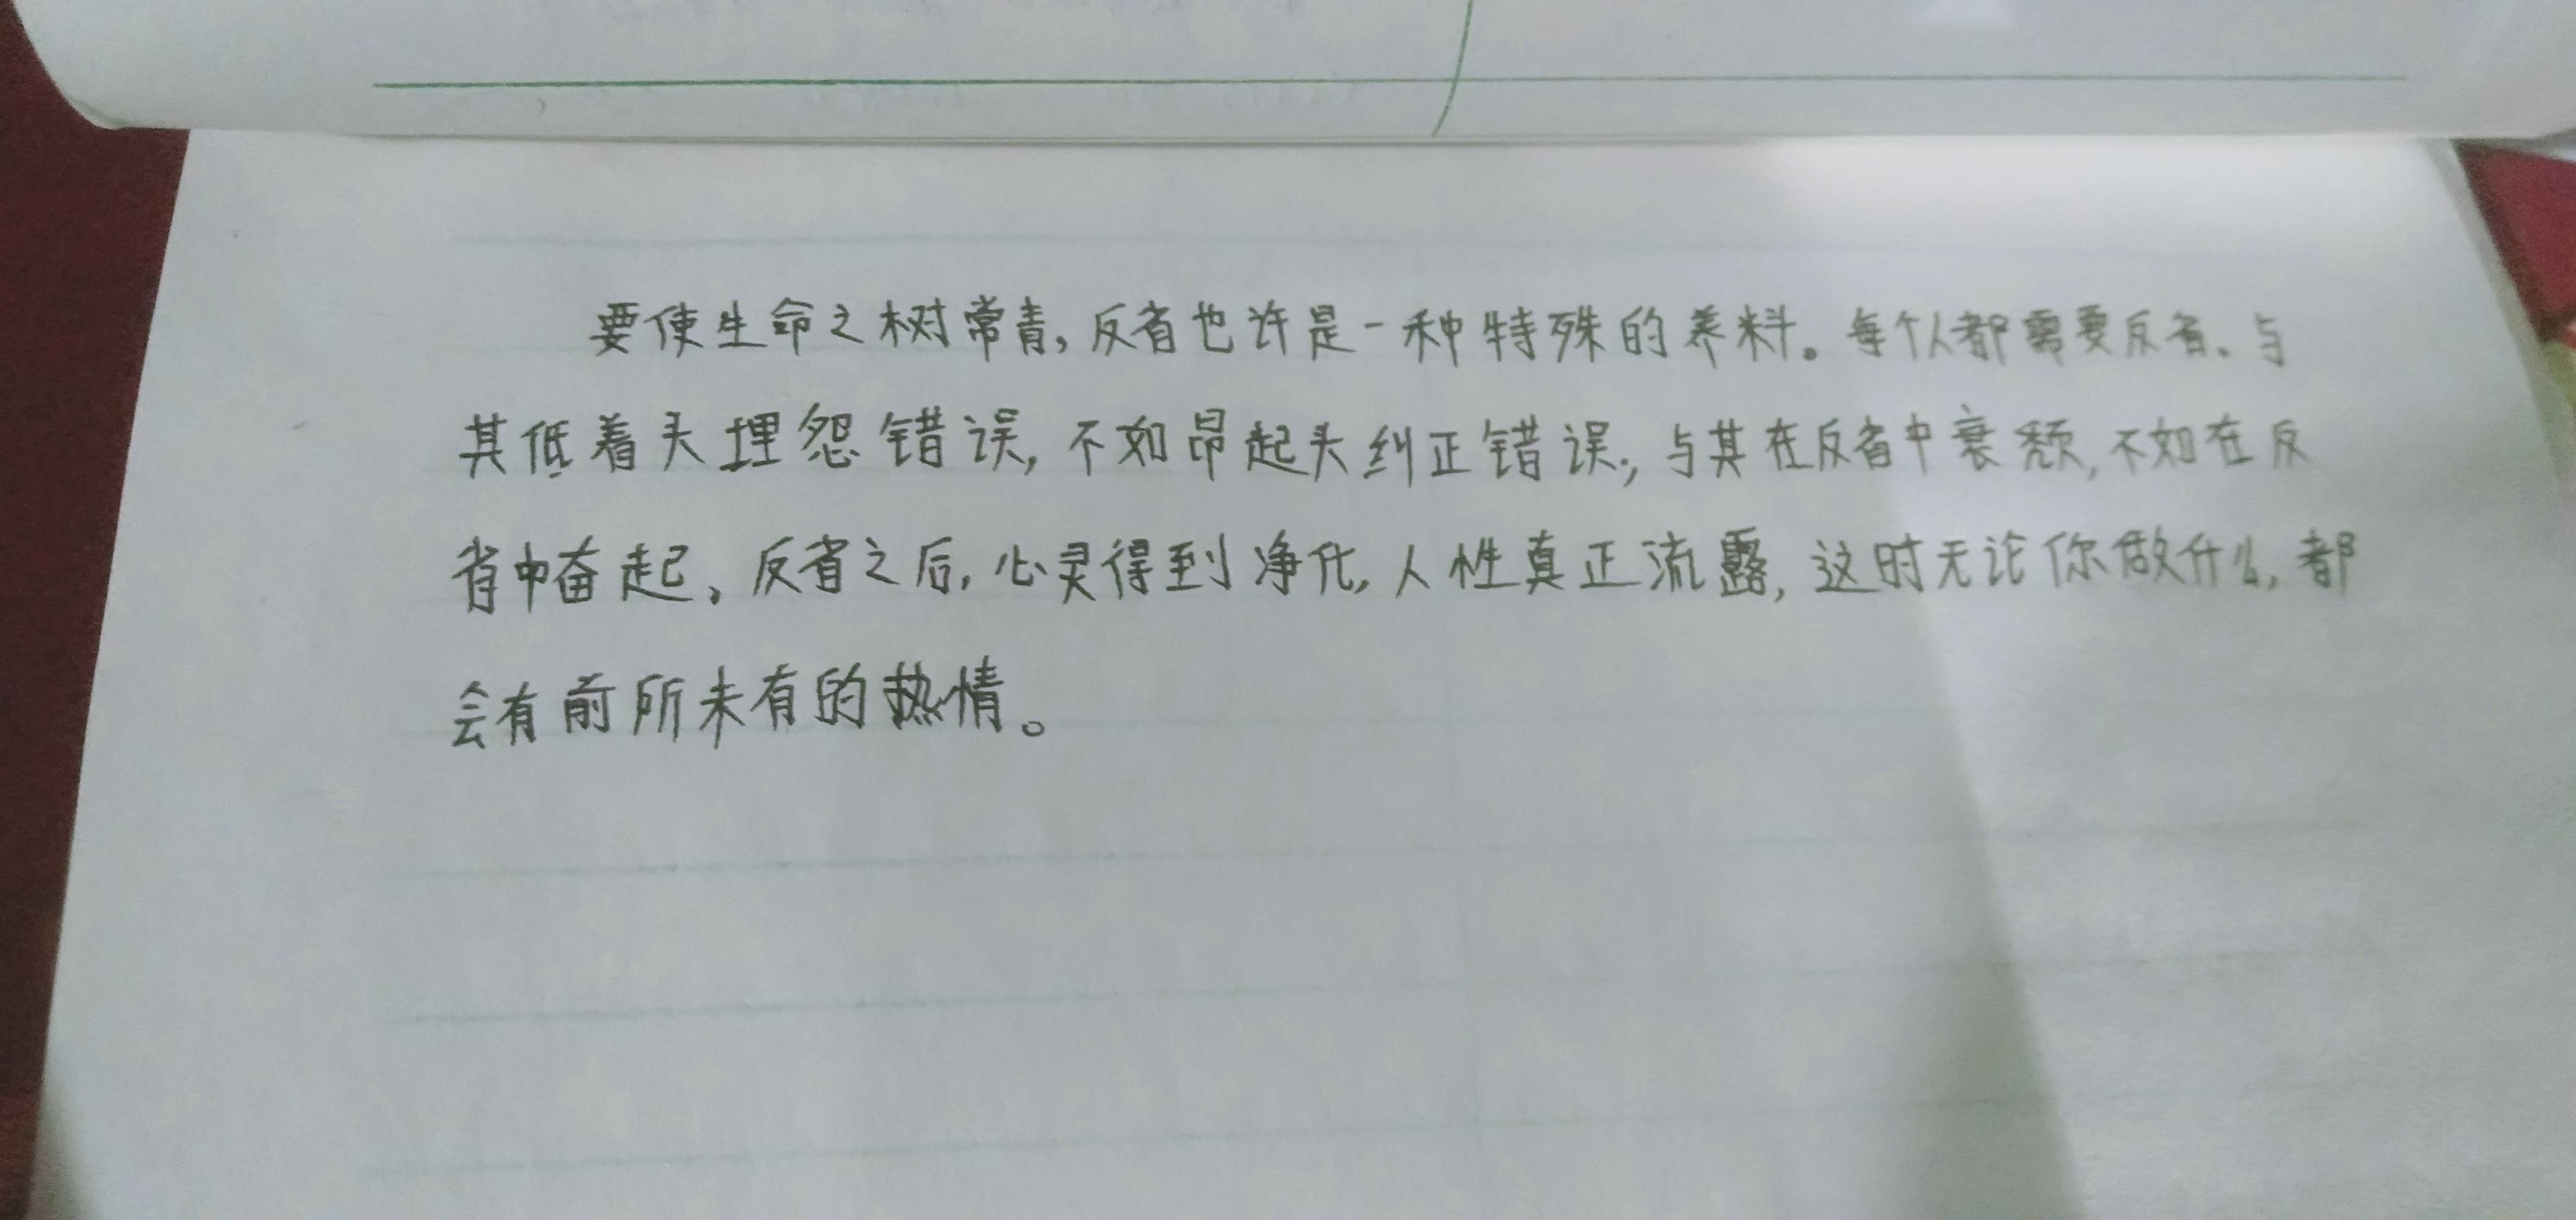 要使生命之树常青，反省也许是一种特殊的养料。每个人都需要反省、与
其低着头埋怨错误，不如昂起头纠正错误；与其在反省中衰颓，不如在反
省中奋起、反省之后，心灵得到净化，人性真正流露，这时无论你做什么，都
会有前所未有的热情。